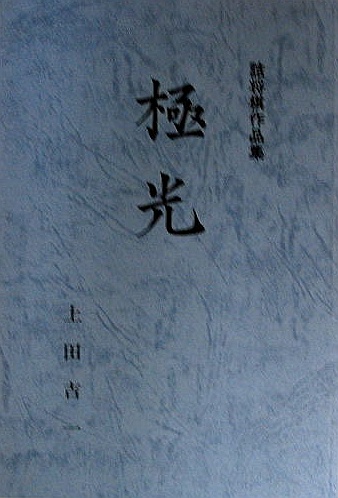 詰将棋作品集
極光
上田吉一